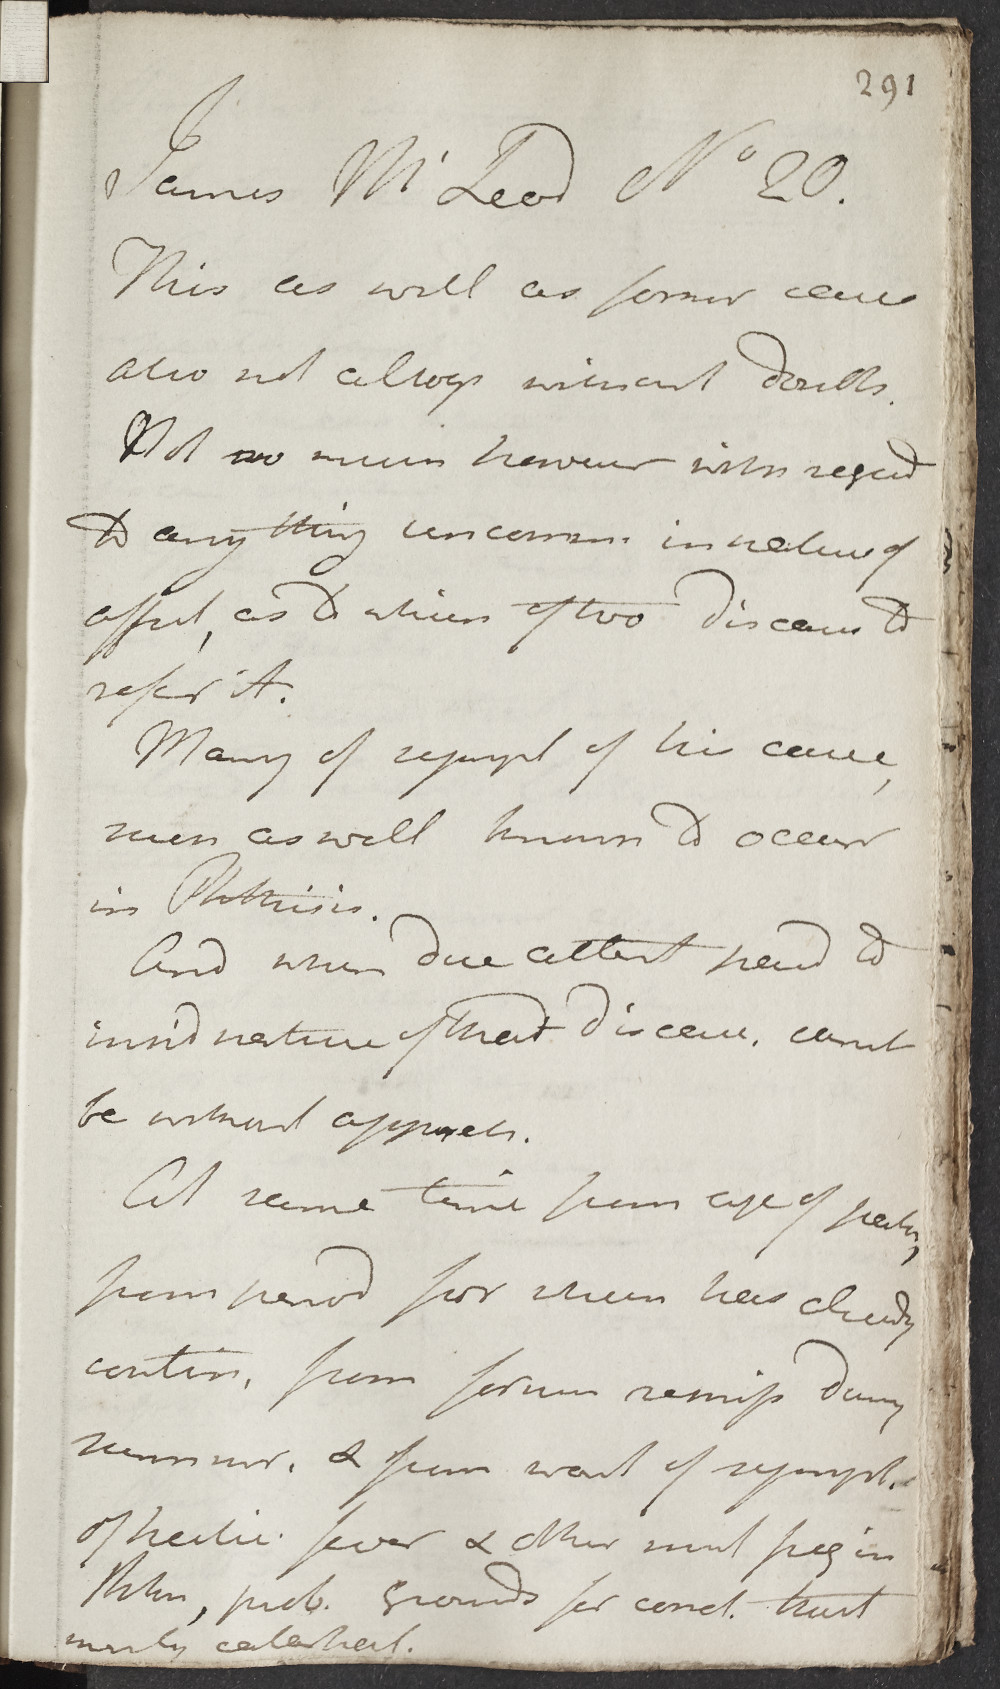 291
James McLeod No 20.
This as well as former case
also not altog. without doubts.
Not so much however with regard
to any thing uncommon in nature of
affect, as to which of two diseases to
refer it.
Many of sympt of his case,
such as well known to occur
in Phthisis.
And when due attent paid to
insid nature of that disease, cannt
be without appreh.
At same time from age of patient,
from period for which has already
contin, from former remiss during
summer, & from want of sympt.
of hectic fever & other most freq in
Phthis, prob. grounds for concl. that
merely catarrhal.